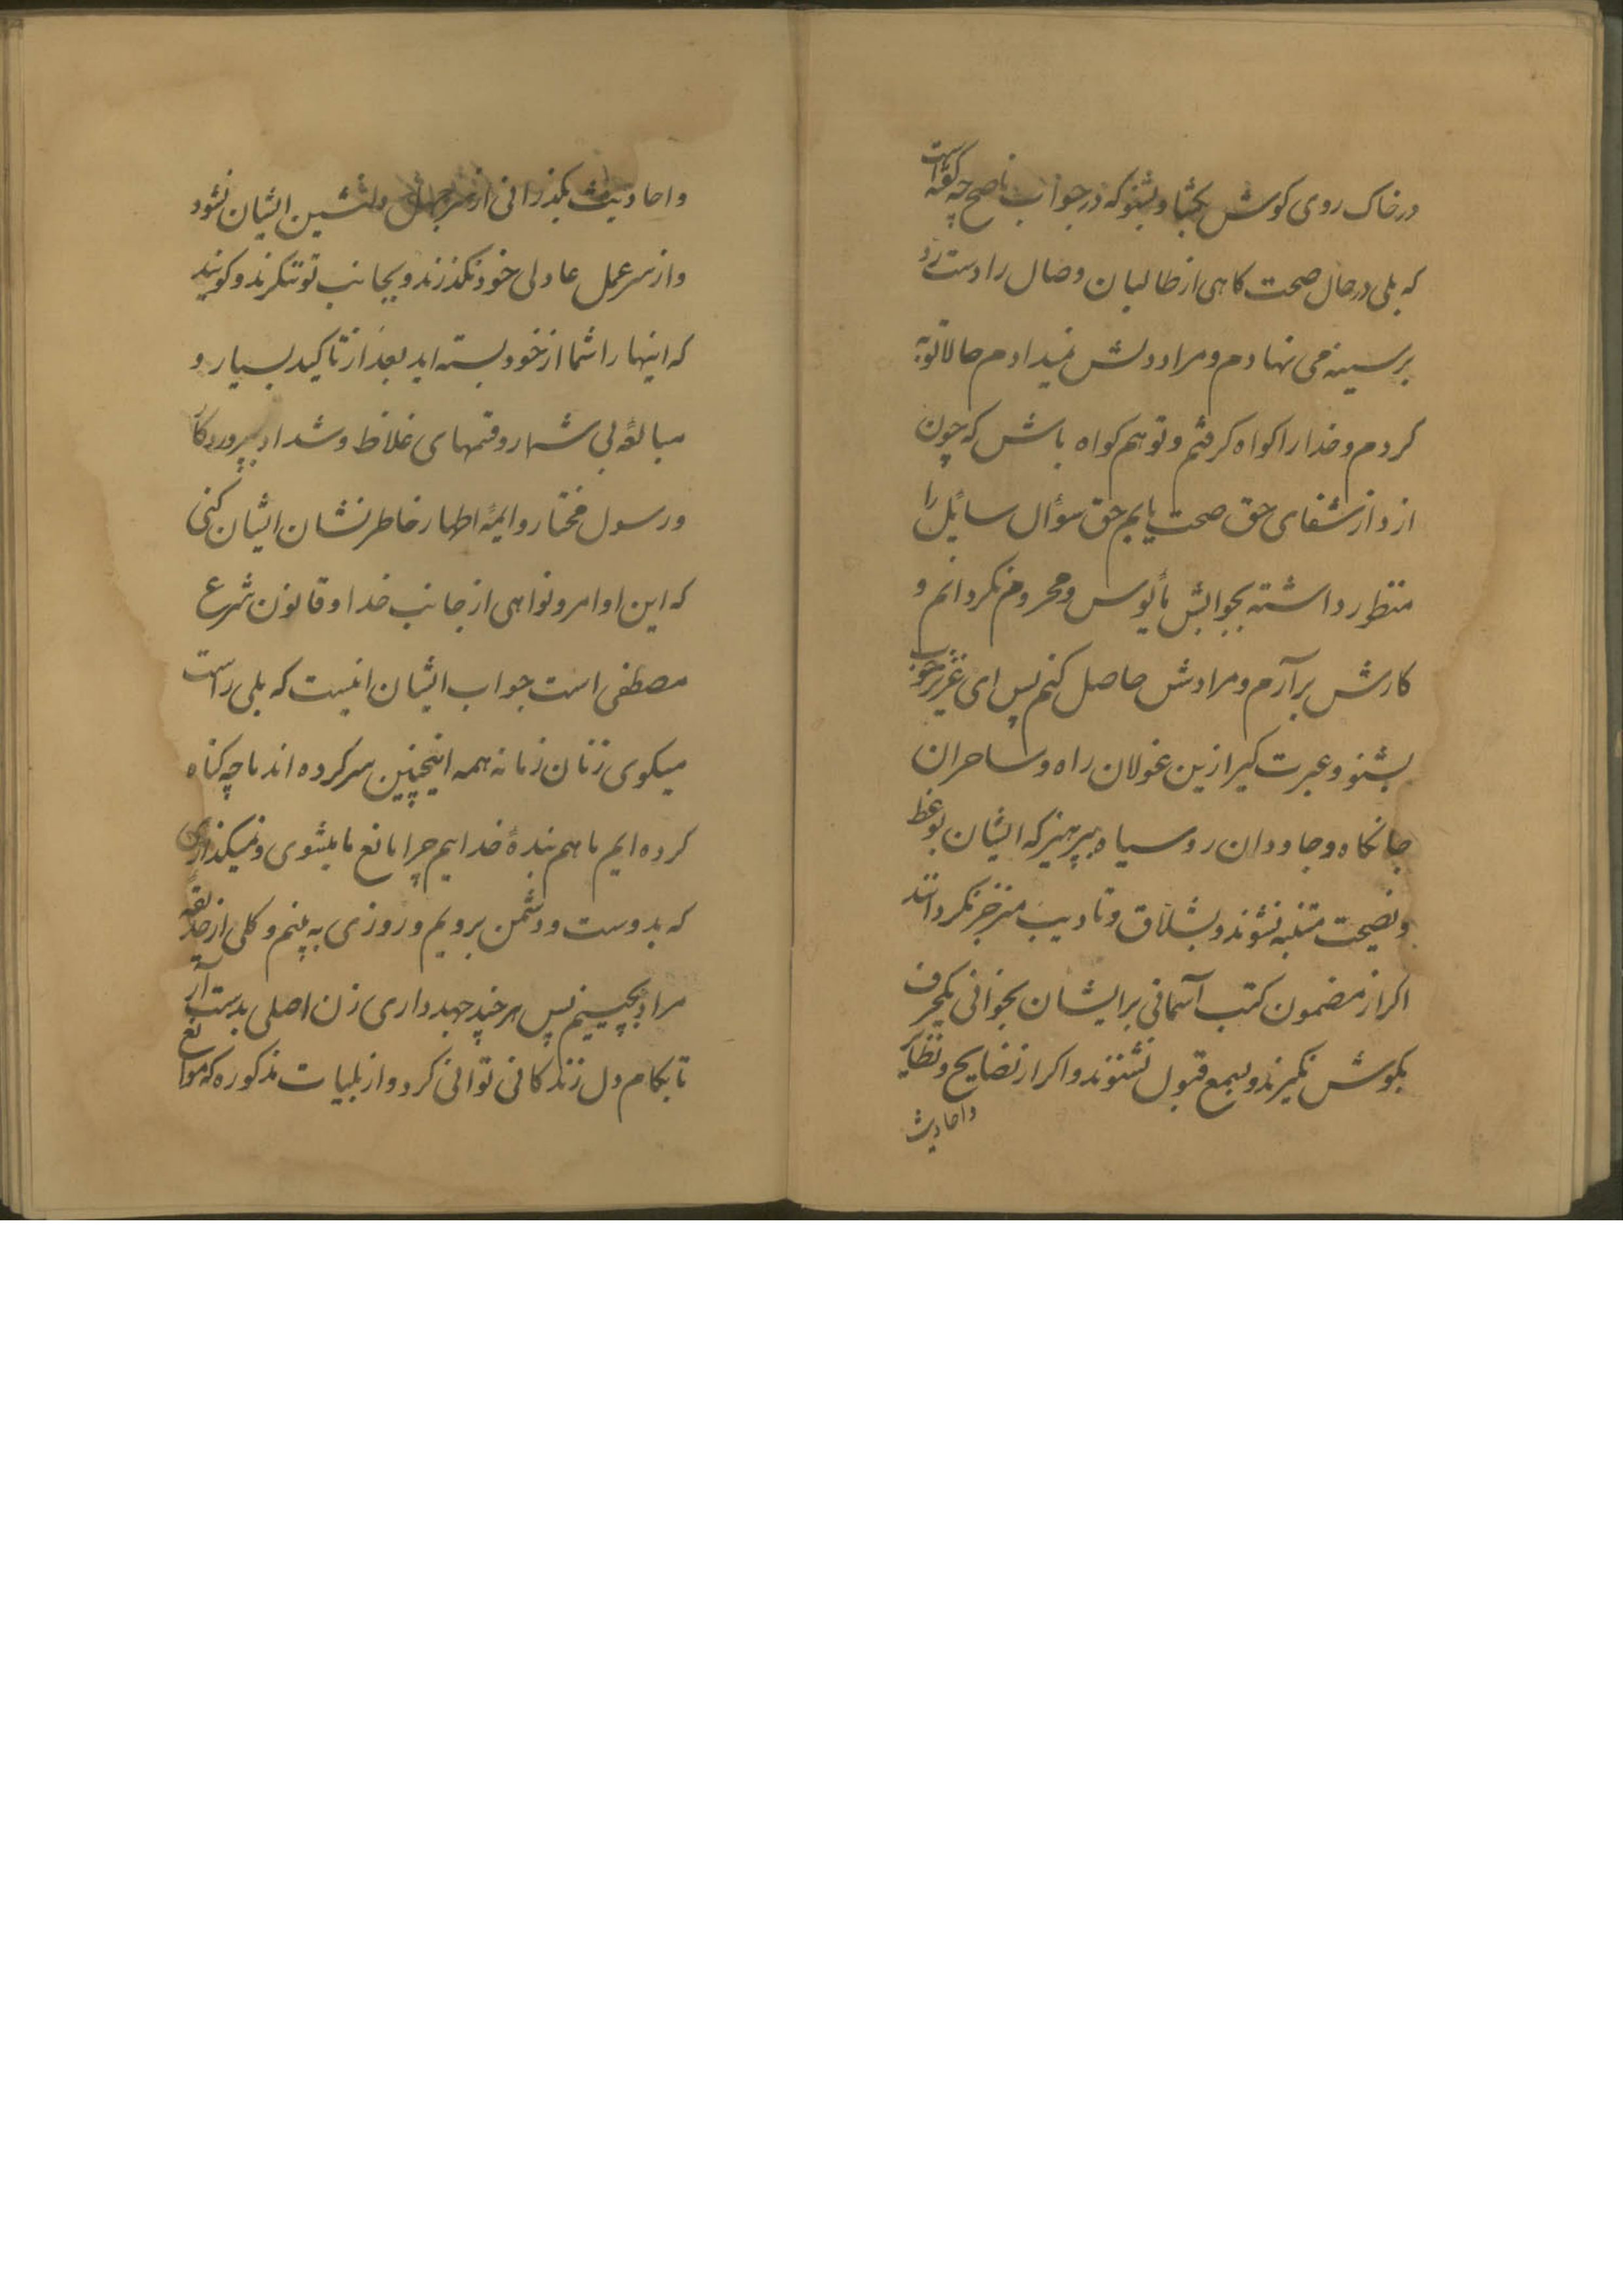 در خاک روی کوش بکشا و بشنو که در جواب ناصح چه کفته است
که بلی در حال صحت کاهی از طالبان وصال را دست رد
بر سینه می نهادم و مراد دلش نمیدادم حالا توبه
کردم و خدا را کواه کرفتم و تو هم کواه باش که چون
از دار شفای حق صحت یابم حق سؤال سایل را
منظور داشته بجوابش مأیوس و محروم نکردانم و
کارش برآرم و مرادش حاصل کنم پس ای عزیز خوب
بشنو و عبرت کیر ازین غولان راه و ساحران
جانکاه و جادوان روسیاه بپرهیز که ایشان بوعظ
و نصیحت متنبه نشوند و بشلاق و تادیب منزجر نکردانند
اکر از مضمون کتب آسمانی بر ایشان بخوانی یکحرف
بکوش نکیرند و بسمع قبول نشنوند و اکر از نصایح و نظایر
واحادیث
واحادیث بکذرانی از سر جهل دلنشین ایشان نشود
و از سر عمل عادلی خود نکذرند و بجانب تو ننکرند و کویند
که اینها را شما از خود بسته اید بعد از تاکید بسیار و
مبالغهٔ بی شمار و قسمهای غلاظ و شداد بپروردکار
و رسول مختار و ایمهٔ اطهار خاطرنشان ایشان کنی
که این اوامر و نواهی از جانب خدا و قانون شرع
مصطفی است جواب ایشان اینست که بلی راست
میکوی زنان زمانه همه اینچنین سر کرده اند ما چه کناه
کرده ایم ما هم بندهٔ خدایم چرا مانع ما میشوی و نمیکذاری
که بدوست و دشمن برویم و روزی به بینم و کلی از حدیقه
مراد بچینم پس هر چند جهد داری زن اصلی بدست آر
تا بکام دل زندکانی توانی کرد و از بلیات مذکوره که موانع